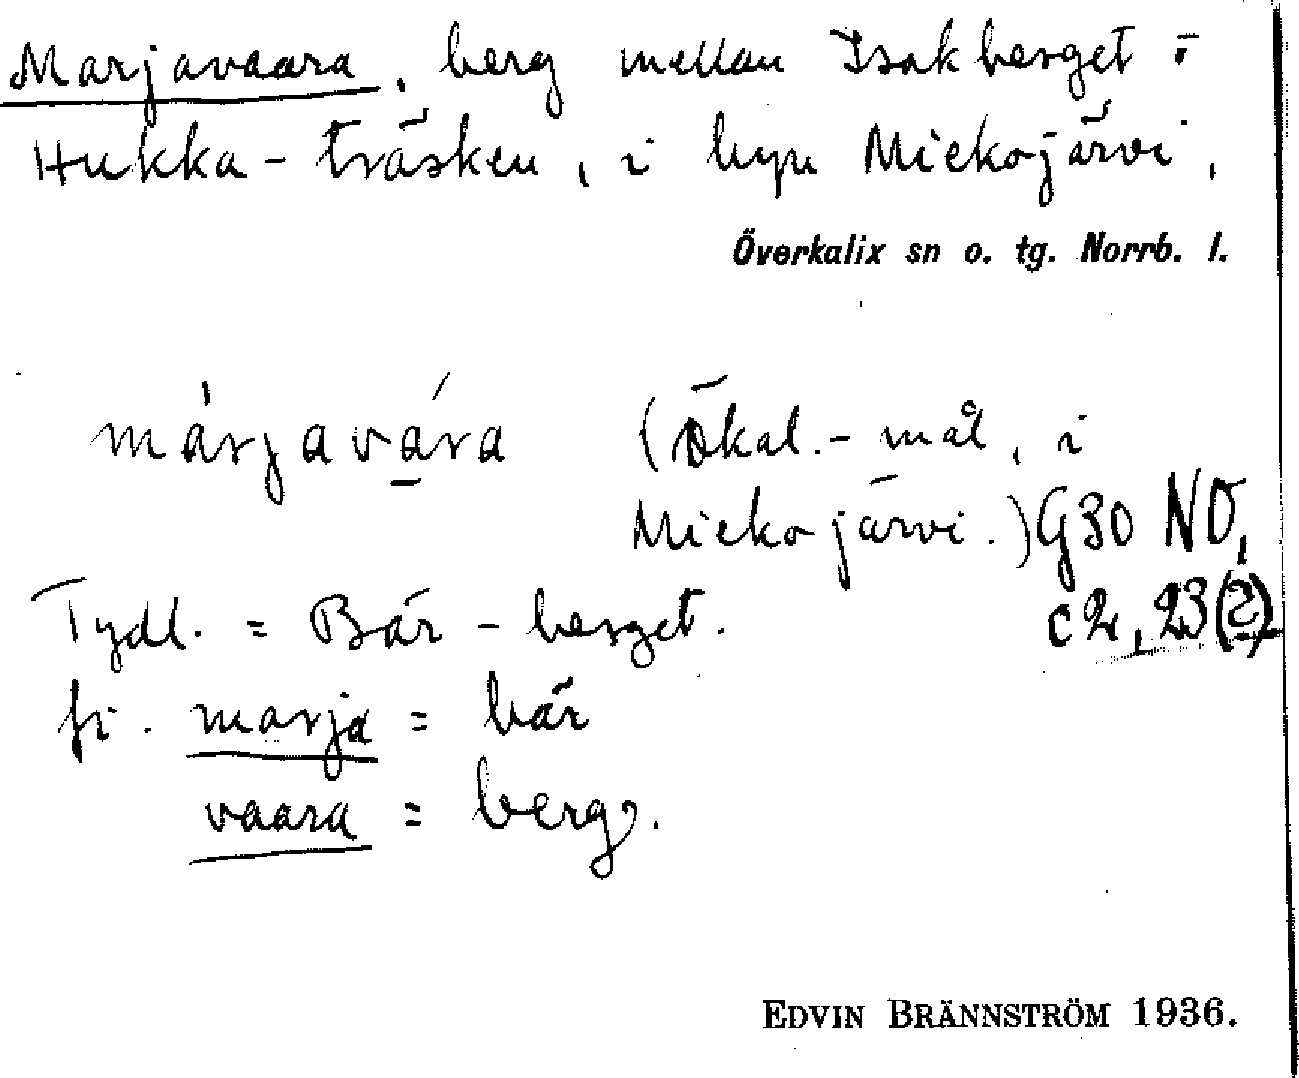 Marjavaara, berg mellan Isakberget o.
Hukka-träsken, i byn Miekojärvi,
Överkalix sn o. tg. Norrb. l.
márjavára (Ökal.-mål, i
Miekojärvi.) G30 NO,
c2, 23(?)
Tydl. = Bär-berget.
fi. marja = bär
vaara = berg.
EDVIN BRÄNNSTRÖM 1936.